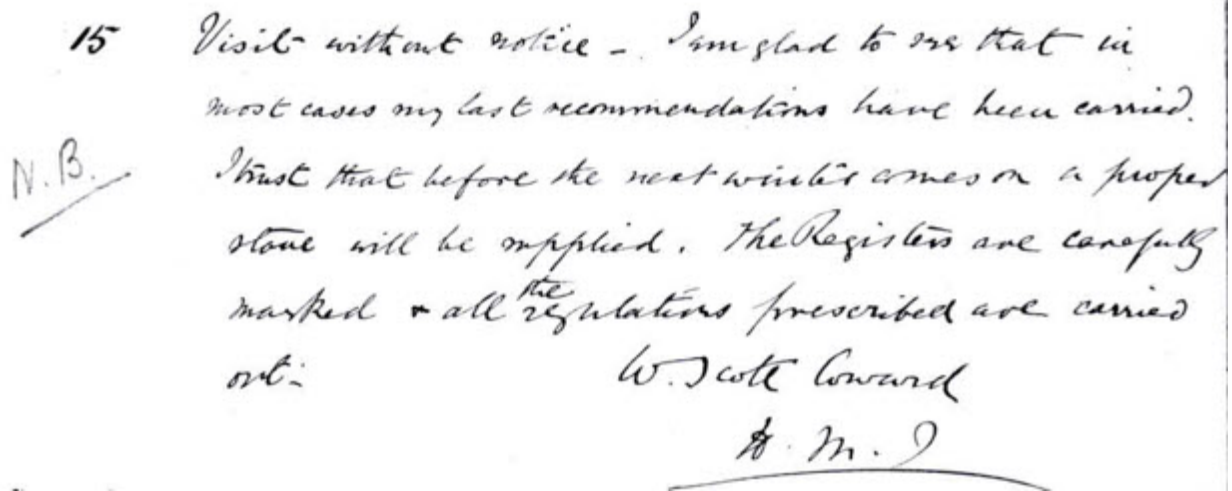 15 Visit without notice - I am glad to see that in
most cases my last recommendations have been carried.
N.B. I trust that before the next winter comes on a proper
stove will be supplied. The Registers are carefully
marked & all the regulations prescribed are carried
out - W. Scott Coward
H. M. I